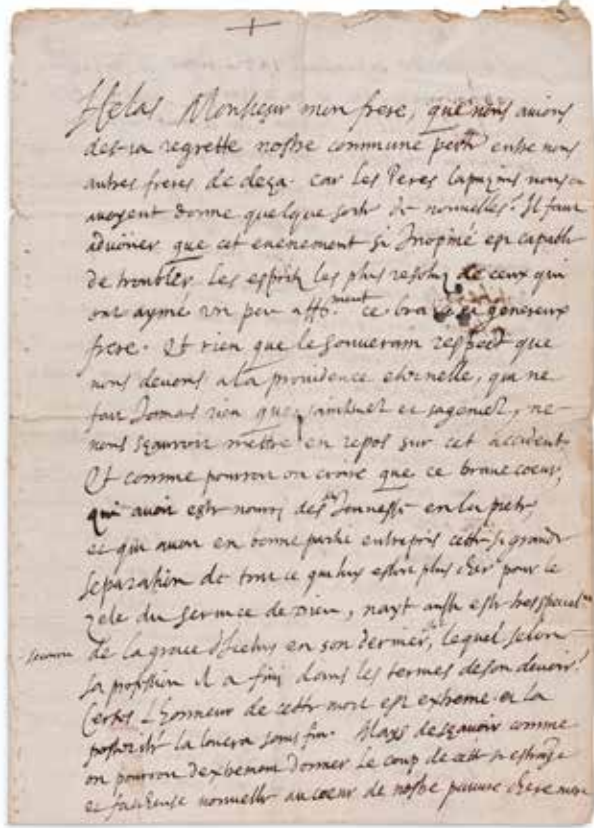 Helas Monsieur mon frere, que nous auions
des-ia regretté nostre commune perte entre nous
autres freres de deça. car les Peres Capucins nous en
auoyent donné quelque sorte de nouuelles! Il faut
aduoüer que cet euenement si Inopiné est capable
de troubler les espritz les plus resoluz de ceux qui
ont aymé un peu aff.ment ce braue et genereux
frere. Et rien que le souuerain respect que
nous deuons a la prouidence eternelle, qui ne
fait Iamais rien que saintement et sagement, ne
nous sçauroit mettre en repos sur cet accident.
Et comme pourroit on croire que ce braue coeur,
qui auoit esté nourri des sa Ieunesse en la pieté,
et qui auoit en bonne partie entrepris cette si grande
separation de tout ce qui luy estoit plus cher pour le
zele du seruice de Dieu, nayt esté
de la grace d'Iceluy en son dernier, lequel selon
sa profession il a fini dans les termes de son deuoir!
Certes L'honneur de cette mort est extreme. et la
posterité la louera sans fin. Mays de sçauoir comme
on pourroit dextrement donner le coup de cette si estrange
et facheuse nouuelle au coeur de nostre pauure chere mere